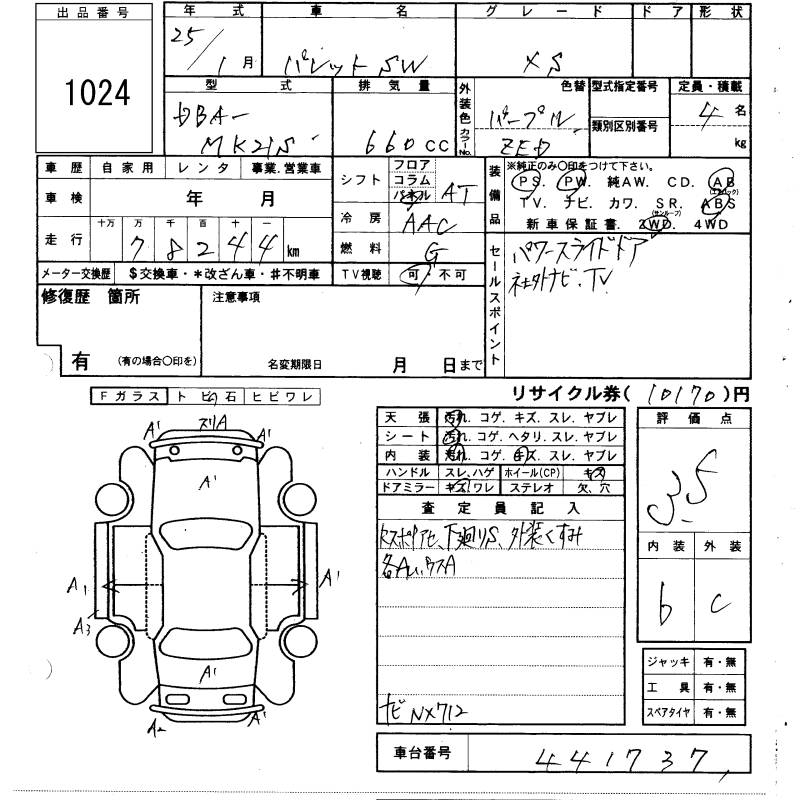 出品番号
1024
年式 車名 グレード ドア 形状
25/1月 パレットSW XS
型式 排気量 外装色 色替 型式指定番号 定員・積載
DBA-MK21S 660CC パープル 類別区別番号 4名
カラーNo. ZED kg
車歴 自家用 レンタ 事業.営業車
車検 年 月
走行 十万 万 千 百 十 一
78244km
メーター交換歴 $交換車・*改ざん車・#不明車
シフト フロア コラム パネル AT
冷房 AAC
燃料 G
TV視聴 可・不可
装備品 ※純正のみ〇印をつけて下さい。
PS. PW. 純AW. CD. AB(エアバック)
TV. ナビ. カワ. SR.(サンルーフ) ABS
新車保証書. 2WD. 4WD
セールスポイント
パワースライドドア
社外ナビ.TV
修復歴 箇所
有 (有の場合〇印を)
注意事項
名変期限日 月 日まで
リサイクル券(10170)円
Fガラス トビ石 ヒビワレ
A' ズリA A'
A'
A1 A'
A3
A'
A2 A'
天張 汚れ. コゲ. キズ. スレ. ヤブレ
シート 汚れ. コゲ. ヘタリ. スレ. ヤブレ
内装 汚れ. コゲ. キズ. スレ. ヤブレ
ハンドル スレ、ハゲ ホイール(CP) キズ
ドアミラー キズ.ワレ ステレオ 欠、穴
査定員記入
下廻りS、外装くすみ
各AU、ウスA
ナビ NX712
評価点
3.5
内装 外装
b C
ジャッキ 有・無
工具 有・無
スペアタイヤ 有・無
車台番号 441737